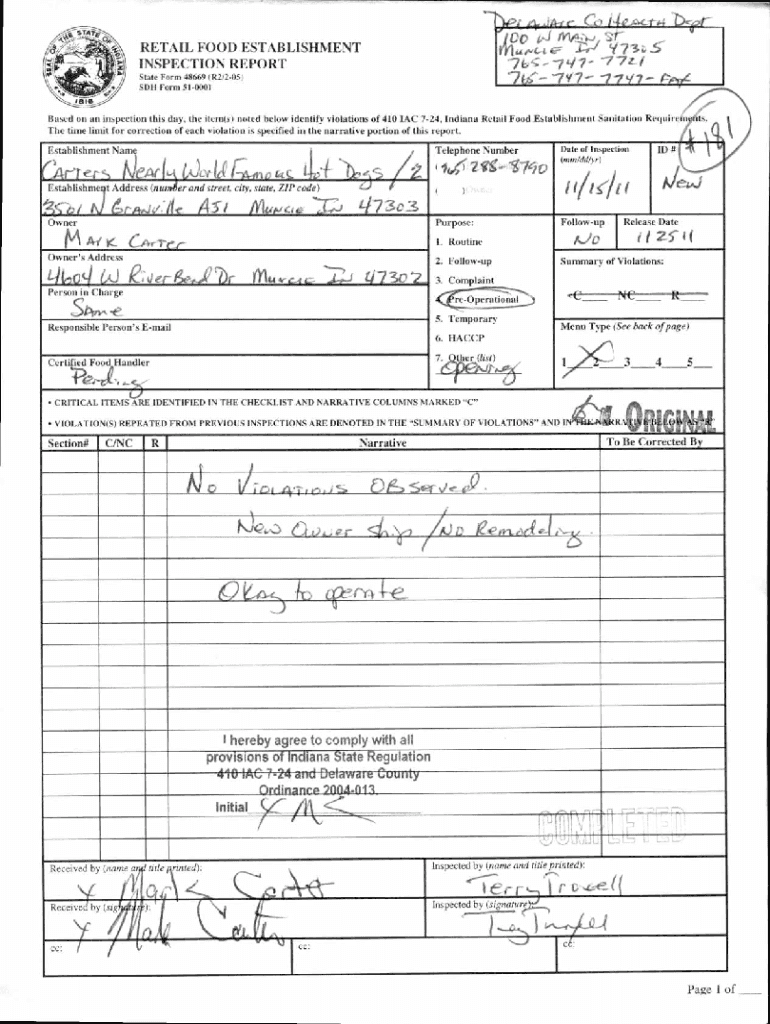 DELAWARE Co HEALTH Dept
100 W MAIN, ST
MUNCIE IN 47305
765-747-7721
765-747-7747-FAX
RETAIL FOOD ESTABLISHMENT
INSPECTION REPORT
State Form 48669 (R2/2-05)
SDH Form 51-0001
SEAL OF THE STATE OF INDIANA
1816
Based on an inspection this day, the item(s) noted below identify violations of 410 IAC 7-24, Indiana Retail Food Establishment Sanitation Requirements.
The time limit for correction of each violation is specified in the narrative portion of this report.
#181
Establishment Name
CARTERS NEARLY WORLD FAMOUS HOT DOGS /2
Telephone Number
(765) 288-8790
Date of Inspection
(mm/dd/yr)
11/15/11
ID #
New
Establishment Address (number and street, city, state, ZIP code)
3501 N GRANVILLE A51 MUNCIE IN 47303
Owner
MARK CARTER
Purpose:
1. Routine
2. Follow-up
3. Complaint
4. Pre-Operational
5. Temporary
6. HACCP
7. Other (list)
OPENING
Follow-up
No
Release Date
112511
Owner's Address
4604 W River Bend Dr Muncie IN 47302
Summary of Violations:
C____ NC____ R____
Person in Charge
SAme
Responsible Person's E-mail
Menu Type (See back of page)
1__2__3__4__5__
Certified Food Handler
Pending
• CRITICAL ITEMS ARE IDENTIFIED IN THE CHECKLIST AND NARRATIVE COLUMNS MARKED "C"
• VIOLATION(S) REPEATED FROM PREVIOUS INSPECTIONS ARE DENOTED IN THE "SUMMARY OF VIOLATIONS" AND IN THE NARRATIVE BELOW AS "R"
ORIGINAL
Section# C/NC R Narrative To Be Corrected By
No VIOLATIONS OBServed.
New Owner ship /No Remodeling.
OKAy to operate
I hereby agree to comply with all
provisions of Indiana State Regulation
410 IAC 7-24 and Delaware County
Ordinance 2004-013.
Initial X MC
COMPLETED
Received by (name and title printed):
X Mark Carter
Inspected by (name and title printed):
Terry Troxell
Received by (signature):
X Mark Carter
Inspected by (signature):
cc:
cc:
cc:
Page 1 of ___